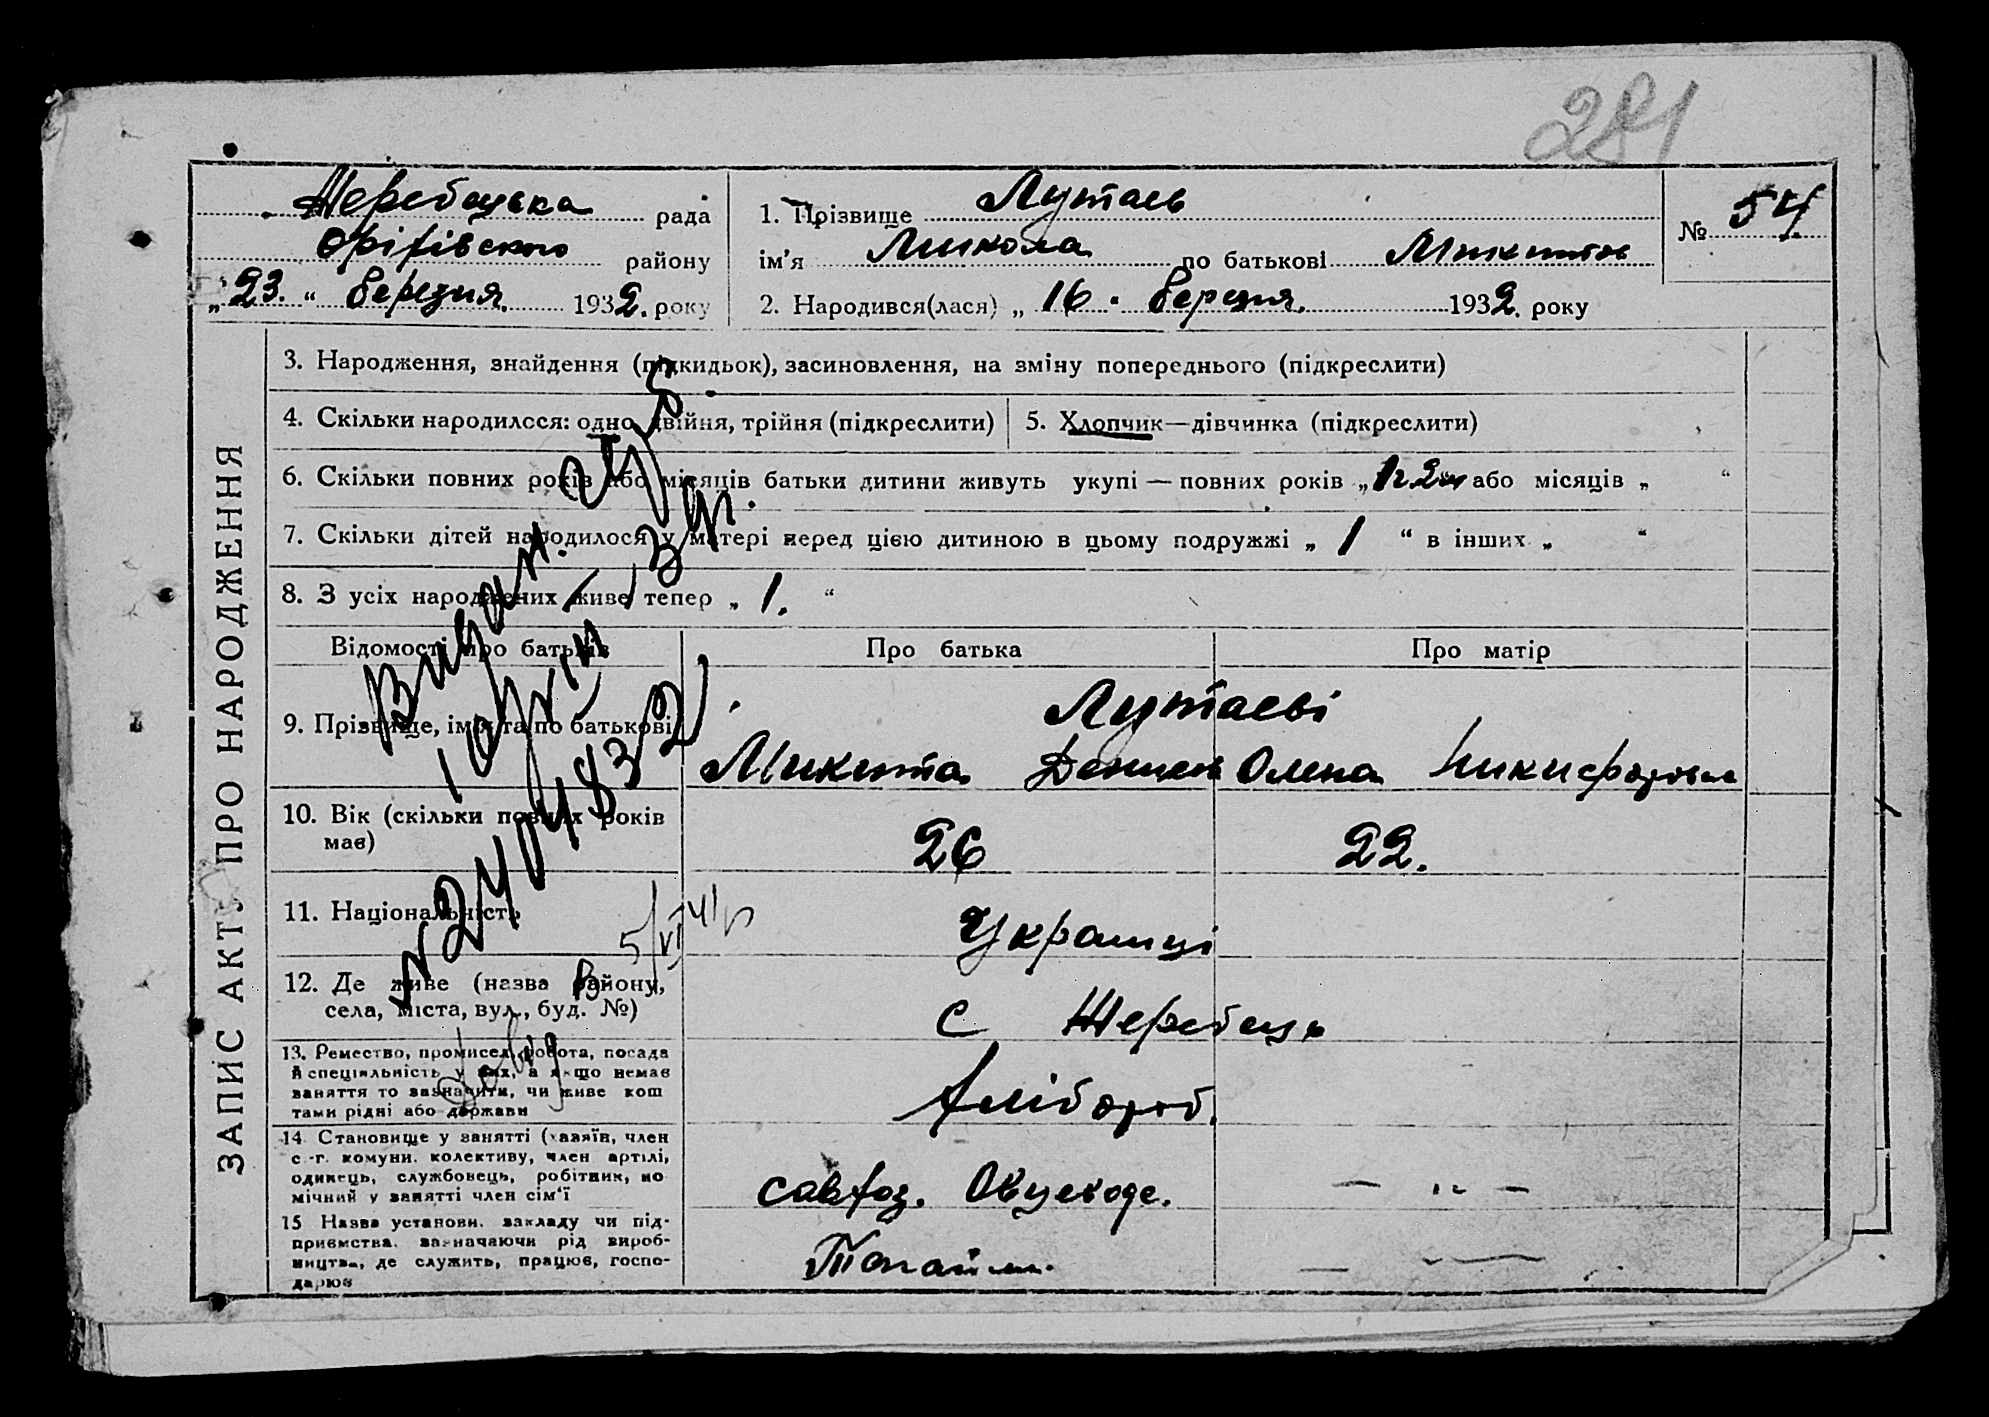 281
Жеребецька рада
Оріхівського району
„23.“ березня 1932. року
1. Прізвище Лутаєв
ім’я Микола по батькові Микитов
2. Народився(лася) „16. березня. 1932. року
№ 54
ЗАПИС АКТУ ПРО НАРОДЖЕННЯ
3. Народження, знайдення (підкидьок), засиновлення, на зміну попереднього (підкреслити)
4. Скільки народилося: одно, двійня, трійня (підкреслити)
5. Хлопчик—дівчинка (підкреслити)
6. Скільки повних років або місяців батьки дитини живуть укупі — повних років „ або місяців „ “
7. Скільки дітей народилося у матері перед цією дитиною в цьому подружжі „ 1 “ в інших „ “
8. З усіх народжених живе тепер „ 1. “
Відомості про батьків Про батька Про матір
Лутаєві
9. Прізвище, ім’я та по батькові Микита Олена Никифоровна
10. Вік (скільки повних років
має) 26 22.
11. Національність Українці
12. Де живе (назва району,
села, міста, вул., буд. №) с Жеребець
13. Ремество, промисел, робота, посада
й спеціяльність у них, а якщо немає
заняття то зазначити, чи живе кош
тами рідні або держави
Хлібороб.
14. Становище у занятті (хазяїн, член
с.-г. комуни. колективу, член артілі,
одинець, службовець, робітник, по
мічний у занятті член сім’ї
савхоз. — „ —
15 Назва установи. закладу чи під-
приємства. зазначаючи рід вироб-
ництва, де служить, працює, госпо-
дарює
Видан.
№ 2404832
5/VI 41р